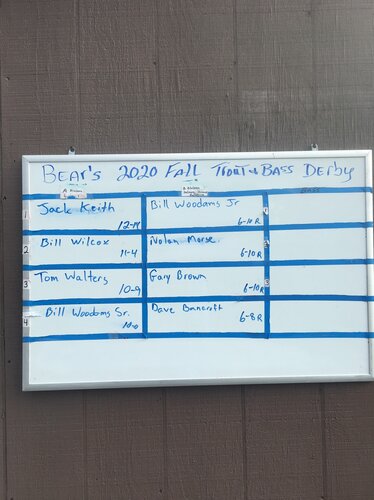 BEAR'S 2020 FALL TROUT & BASS DERBY
BASS
1 Jack Keith 12-14
Bill Woodams Jr 6-10 R
2 Bill Wilcox 11-4
Nolan Morse 6-10 R
3 Tom Walters 10-9
Gary Brown 6-10 R
3
4 Bill Woodams Sr. 10-0
Dave Bancroft 6-8 R